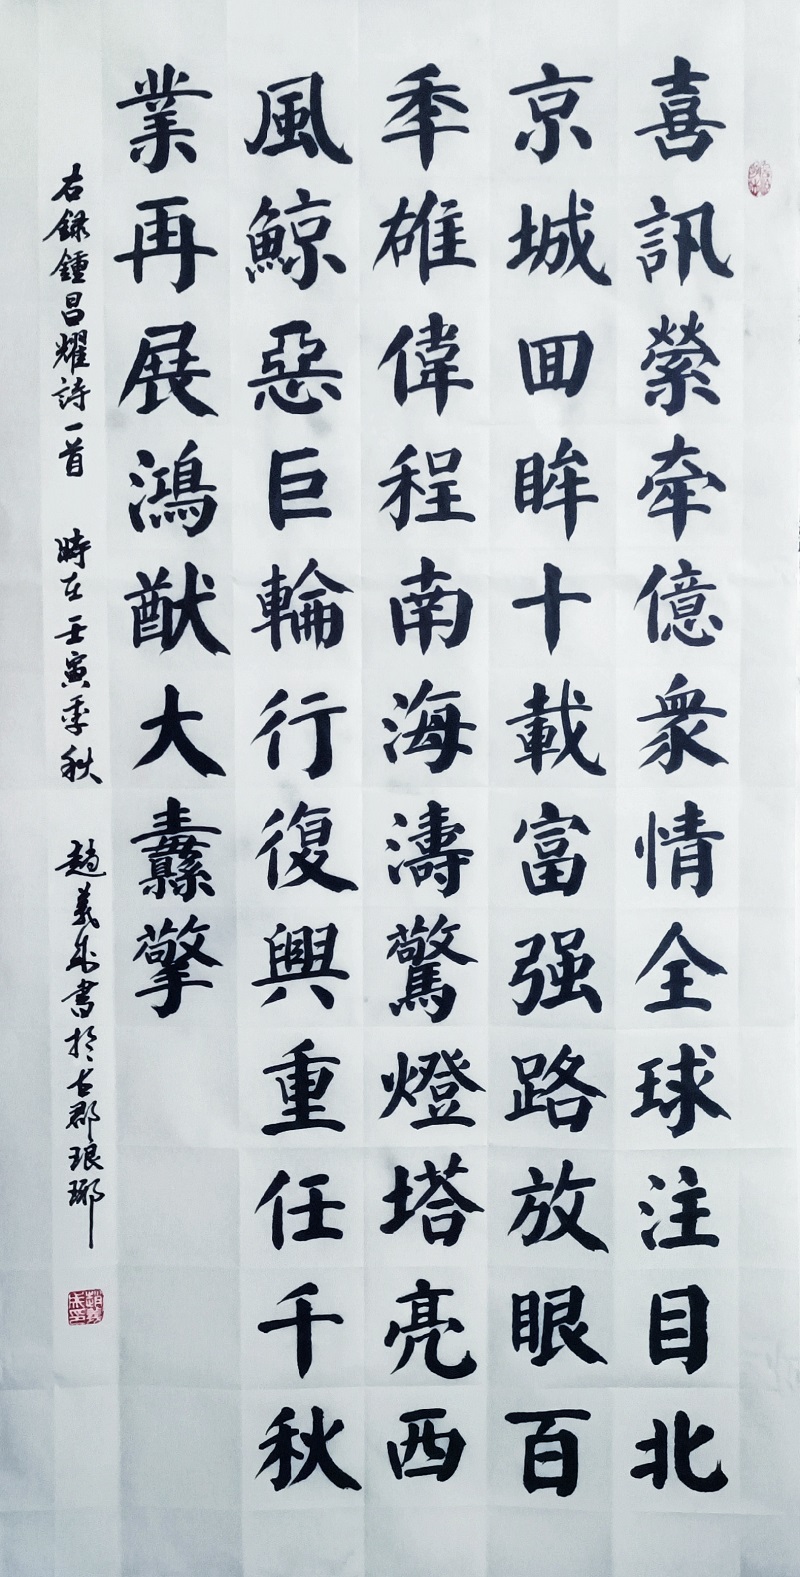 喜訊縈牽億衆情全球注目北
京城回眸十載富强路放眼百
秊雄偉程南海濤驚燈塔亮西
風鯨惡巨輪行復興重任千秋
業再展鴻猷大纛擎
右録鍾昌耀詩一首 時在壬寅季秋 趙義成書於古郡琅琊